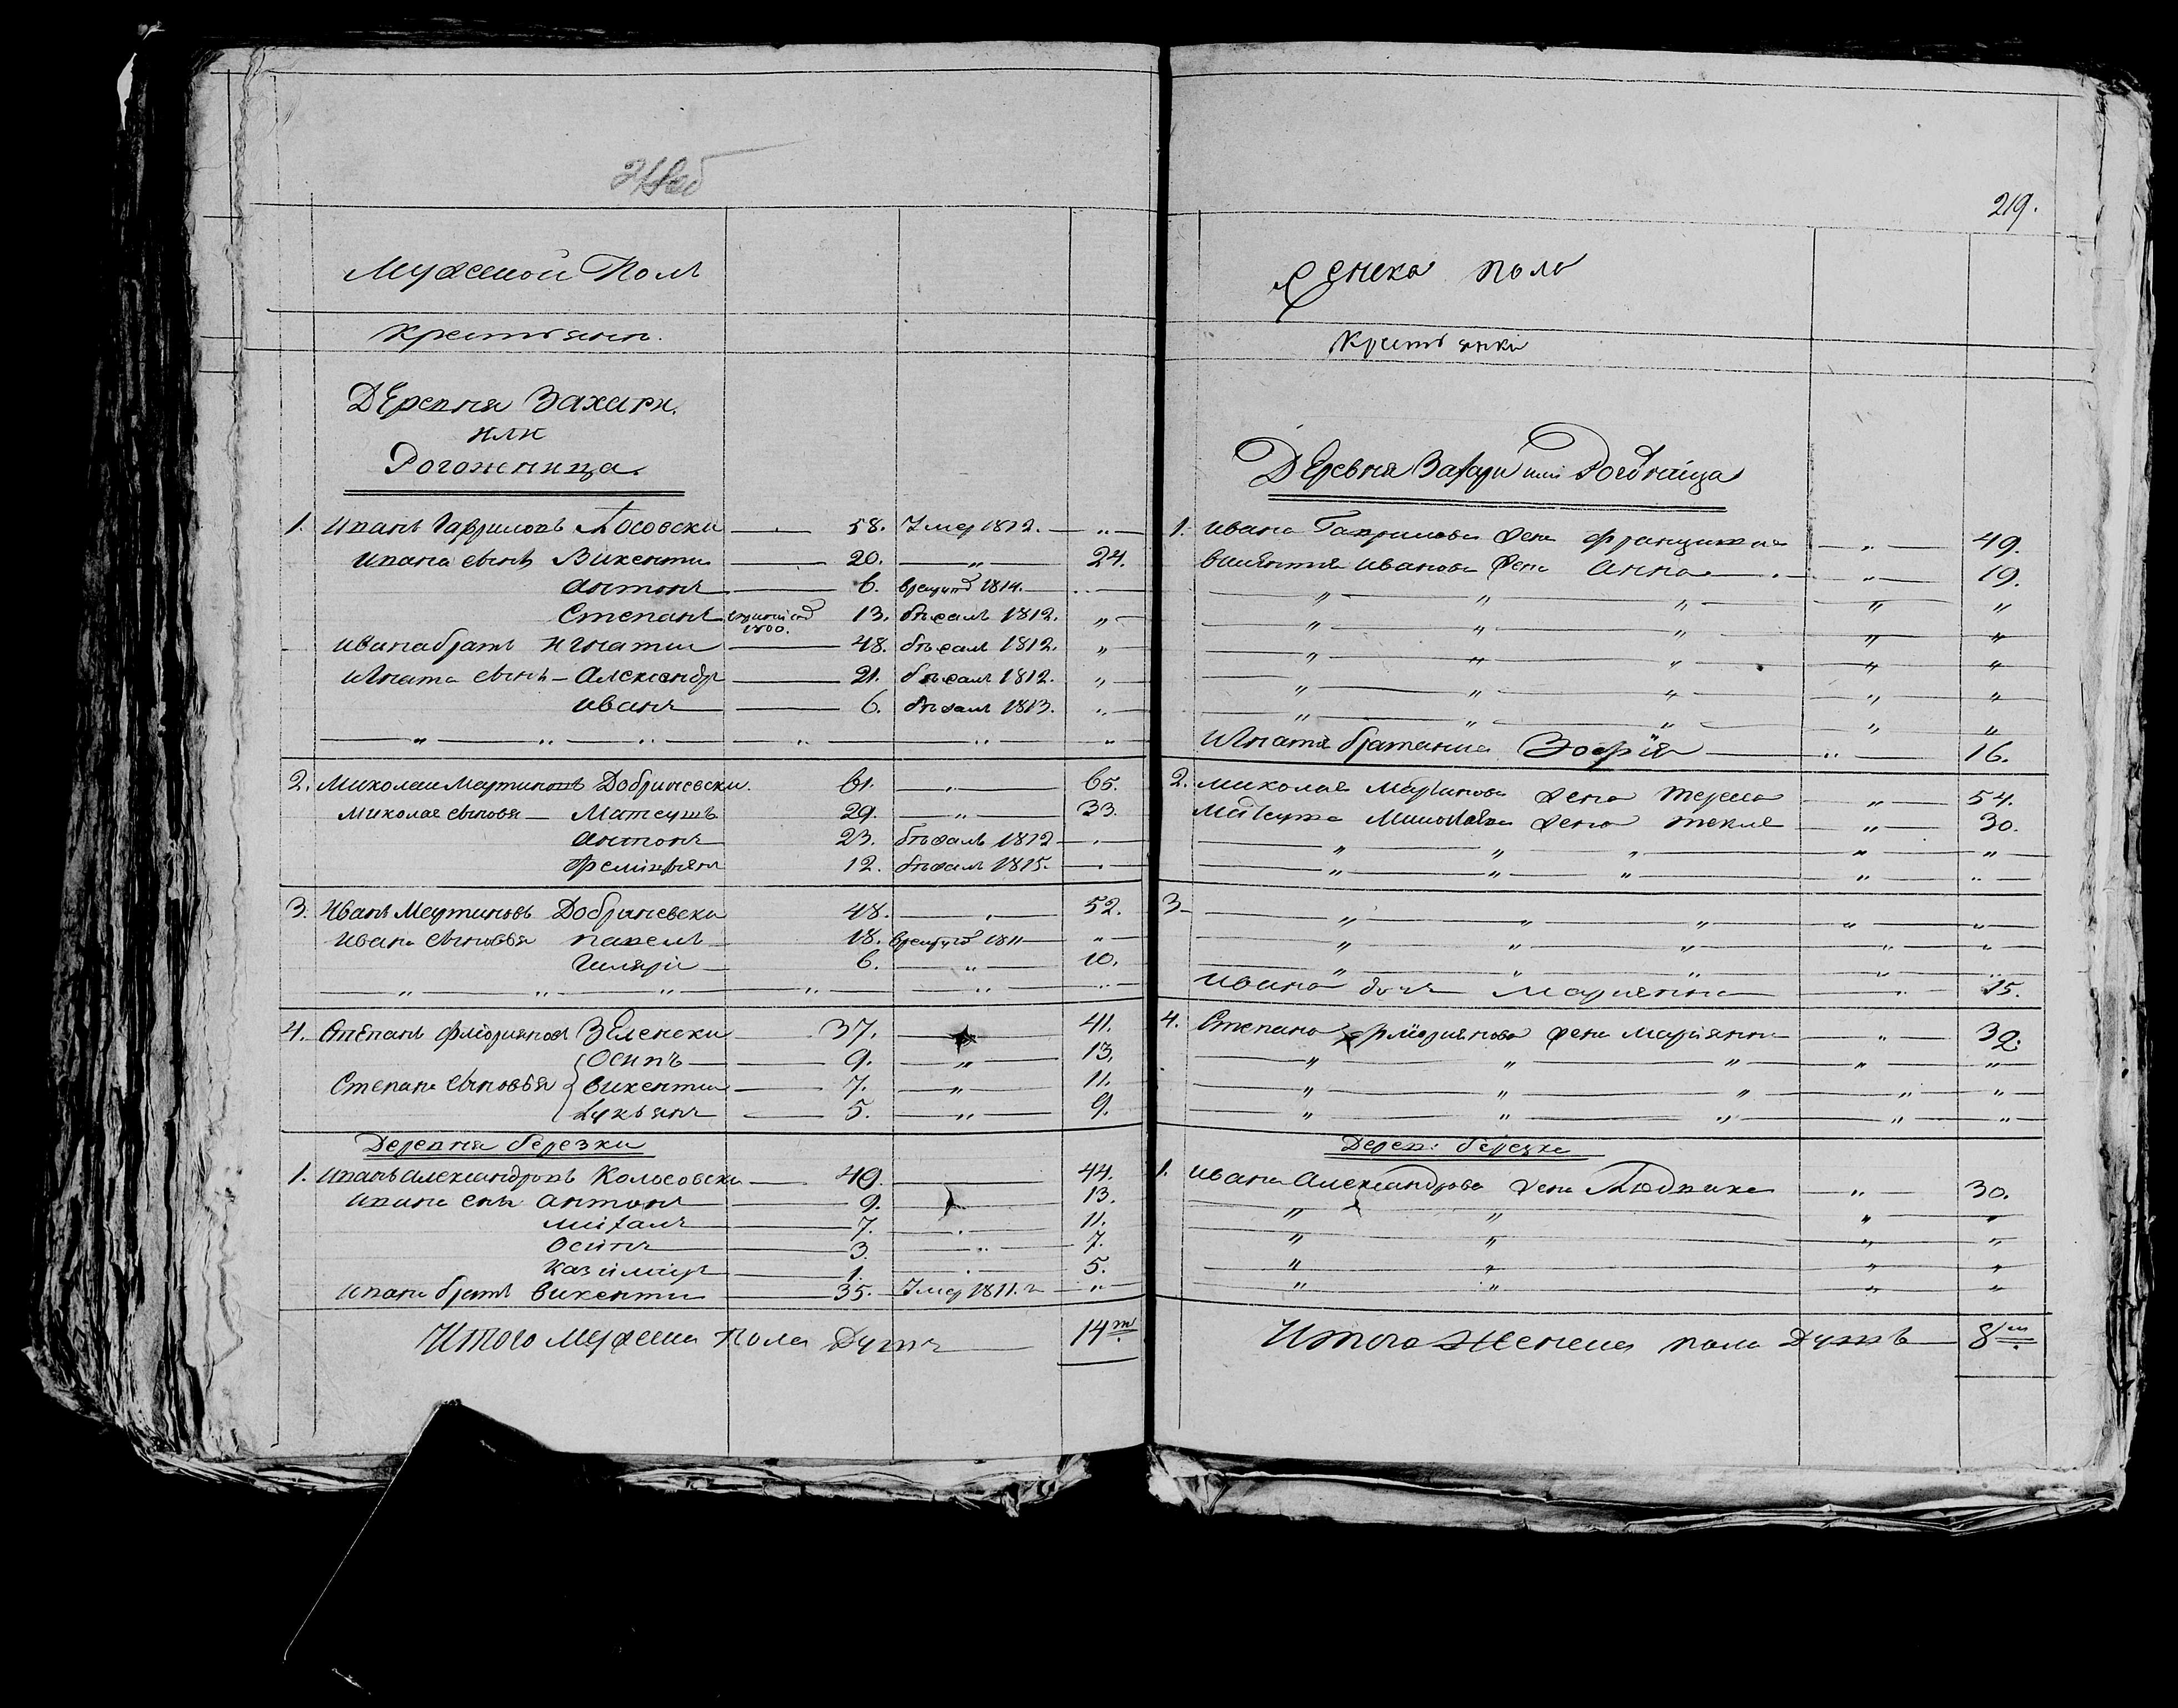 219.
Мужеской Полъ
крестьяни.
Деревня Захари.
или
Рогожница.
1. Иванъ Гавриловъ Косовски — 58. Умер 1812. — „
Ивана сынъ Викенти — 20. — „ — 24.
Антонъ — 6. 1814. —
Степанъ 1800. 13. бѣжалъ 1812. „
Ивана братъ Игнатии — 48. бѣжалъ 1812. „
Игната сынъ — Александръ — 21. бѣжалъ 1812. „
Иванъ — 6. бѣжалъ 1813. „
„ „ „ „ „ „
2. Миколаи Мартиновъ Добриневски. 61. — „ — 65.
Миколая сыновья — Матеушъ 29. — „ — 33.
Антонъ 23. бѣжалъ 1812 —
12. бѣжалъ 1815. —
3. Иванъ Мартиновъ Добриневски 48. — „ — 52.
Ивана сыновья павелъ 18. 1811 — „
Гиляри — 6. — „ — 10.
„ „ „ „ „ „
4. Степанъ Флоріяновъ Зеленски — 37. — 41.
Осипъ — 9. — „ — 13.
Степана сыновья викентии — 7. — „ — 11.
Лукьянъ — 5. — „ — 9.
Деревня березки
1. Иванъ Александровъ Колосовски — 40. — 44.
Ивана снъ Антонъ — 9. — 13.
михалъ — 7. — 11.
Осипъ — 3. — „ — 7.
Казимиръ — 1. — 5.
Ивана братъ Викенти — 35. Умер 1811. г — „
Итого мужеска Пола Душъ — 14 т.
Женска пола
Крестьянки
Деревня Захари или
1. Ивана Гаврилова жена Францишка — „ — 49.
Викентия Иванова жена Анна — „ — 19.
„ „ „ „ „
„ „ „ „ „
„ „ „ „ „
„ „ „ „ „
„ „ „ „ „
Игнатия братанка Зофия — „ — 16.
2. Миколая Мартинова жена Тереса — „ — 54.
Матеуша Миколаева жена текля — „ — 30.
„ „ „ „ „
„ „ „ „ „
3 — „ „ „ „ „
„ „ „ „ „
„ „ „ „ „
Ивана дочь Мариянна — 15.
4. Степана Флоріянова жена Маріянна — „ — 32.
„ „ „ „ „
„ „ „ „ „
„ „ „ „ „
Дерев: березки
1. Ивана Александрова жена Людвика — „ — 30.
„ „ „ „
„ „ „ „
„ „ „ „
„ „ „ „
Итого женска пола Душъ — 8